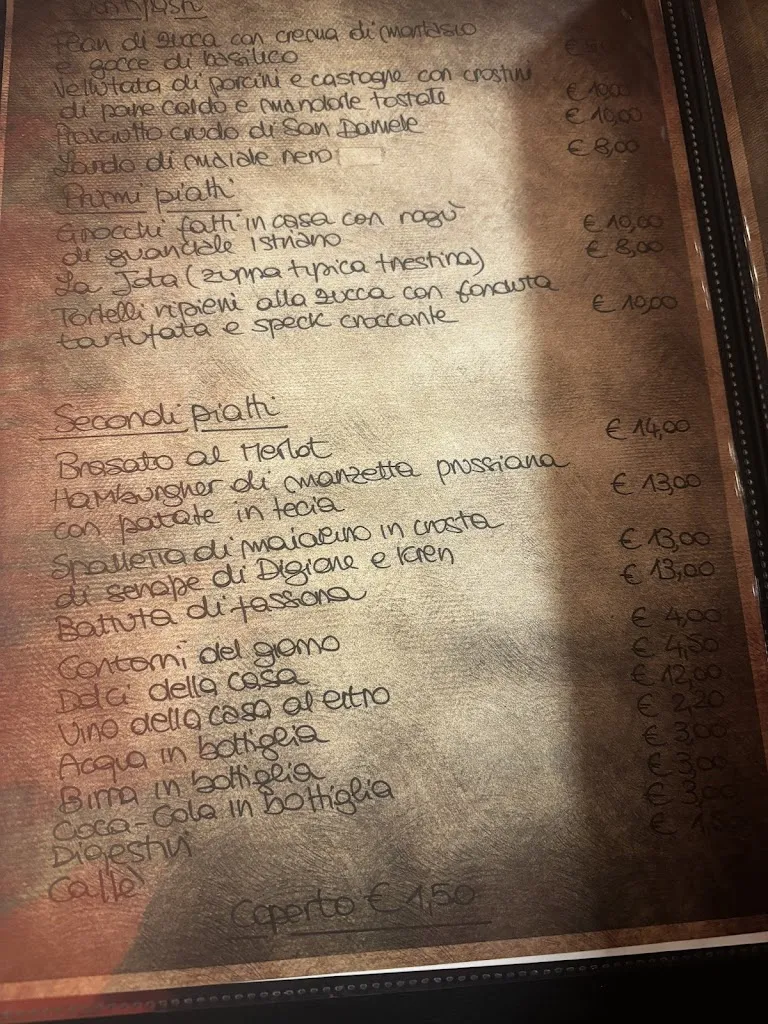 Antipasti
Flan di zucca con crema di Montasio
e gocce di basilico €
Vellutata di porcini e castagne con crostini
di pane caldo e mandorle tostate € 10,00
Prosciutto crudo di San Daniele € 10,00
Lardo di maiale nero € 8,00
Primi piatti
Gnocchi fatti in casa con ragù € 10,00
di guanciale Istriano
La Jota (zuppa tipica triestina) € 8,00
Tortelli ripieni alla zucca con fonduta
tartufata e speck croccante € 10,00
Secondi piatti
Brasato al Merlot € 14,00
Hamburgher di manzetta prussiana
con patate in tecia € 13,00
Spalletta di maialino in crosta
di senape di Digione e Kren € 13,00
Battuta di fassona € 13,00
Contorni del giorno € 4,00
Dolci della casa € 4,50
Vino della casa al litro € 12,00
Acqua in bottiglia € 2,20
Birra in bottiglia € 3,00
Coca-Cola in bottiglia € 3,00
Digestivi € 3,00
Caffè €
Coperto € 1,50